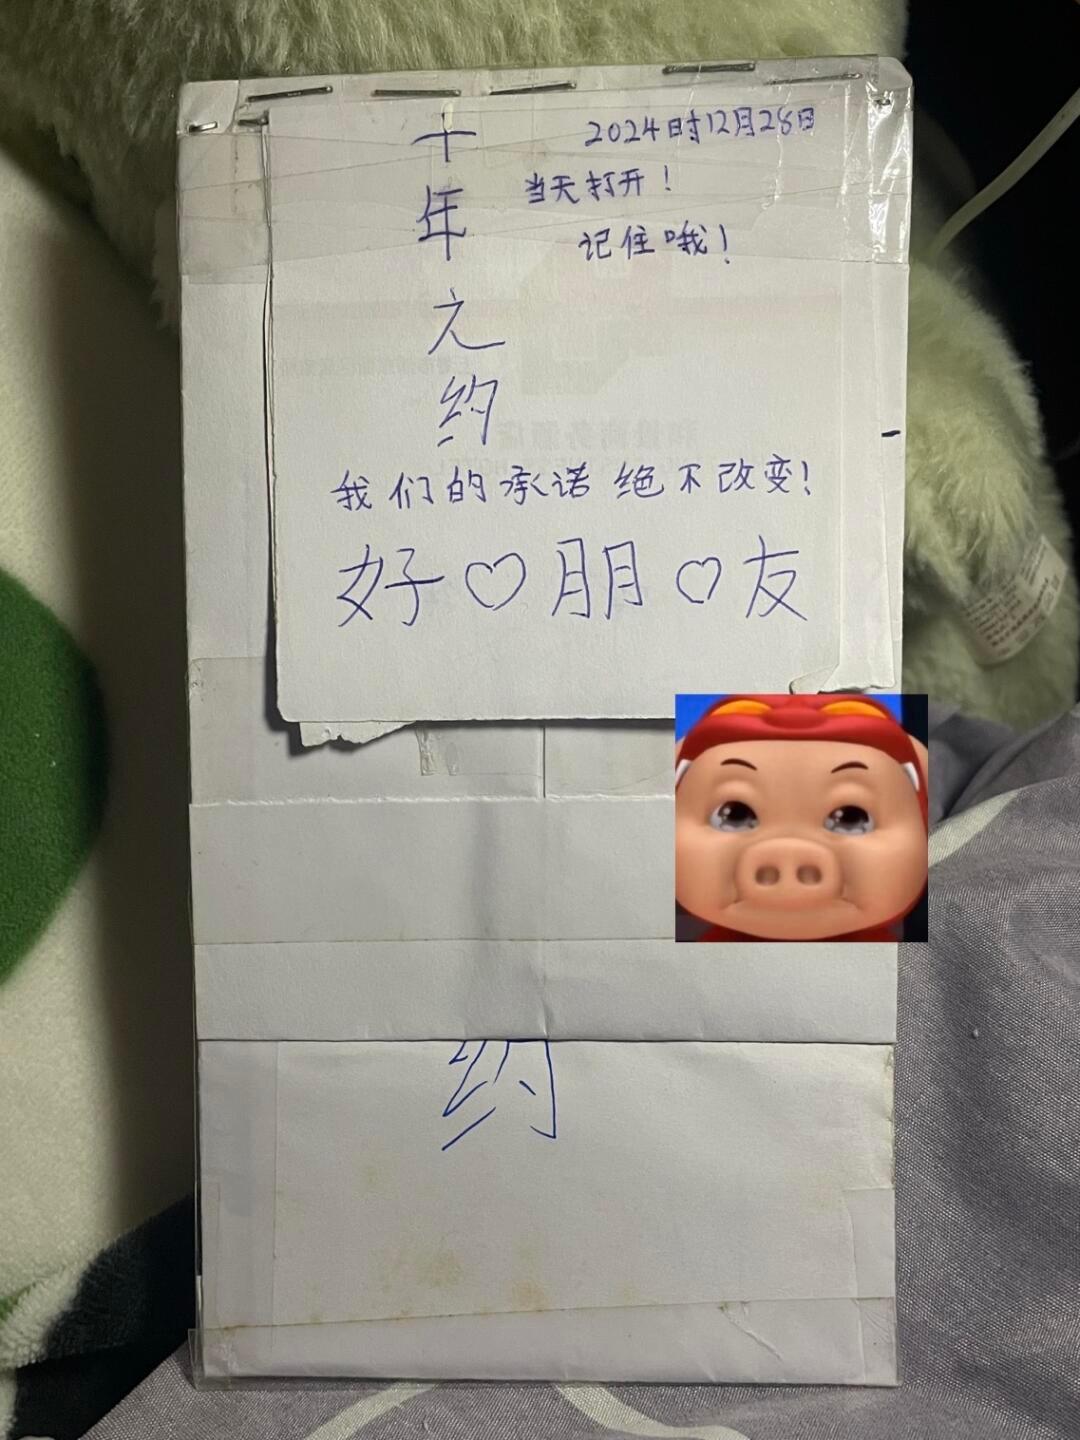 十年之约
2024时12月28日
当天打开！
记住哦！
我们的承诺绝不改变！
好♡朋♡友
约